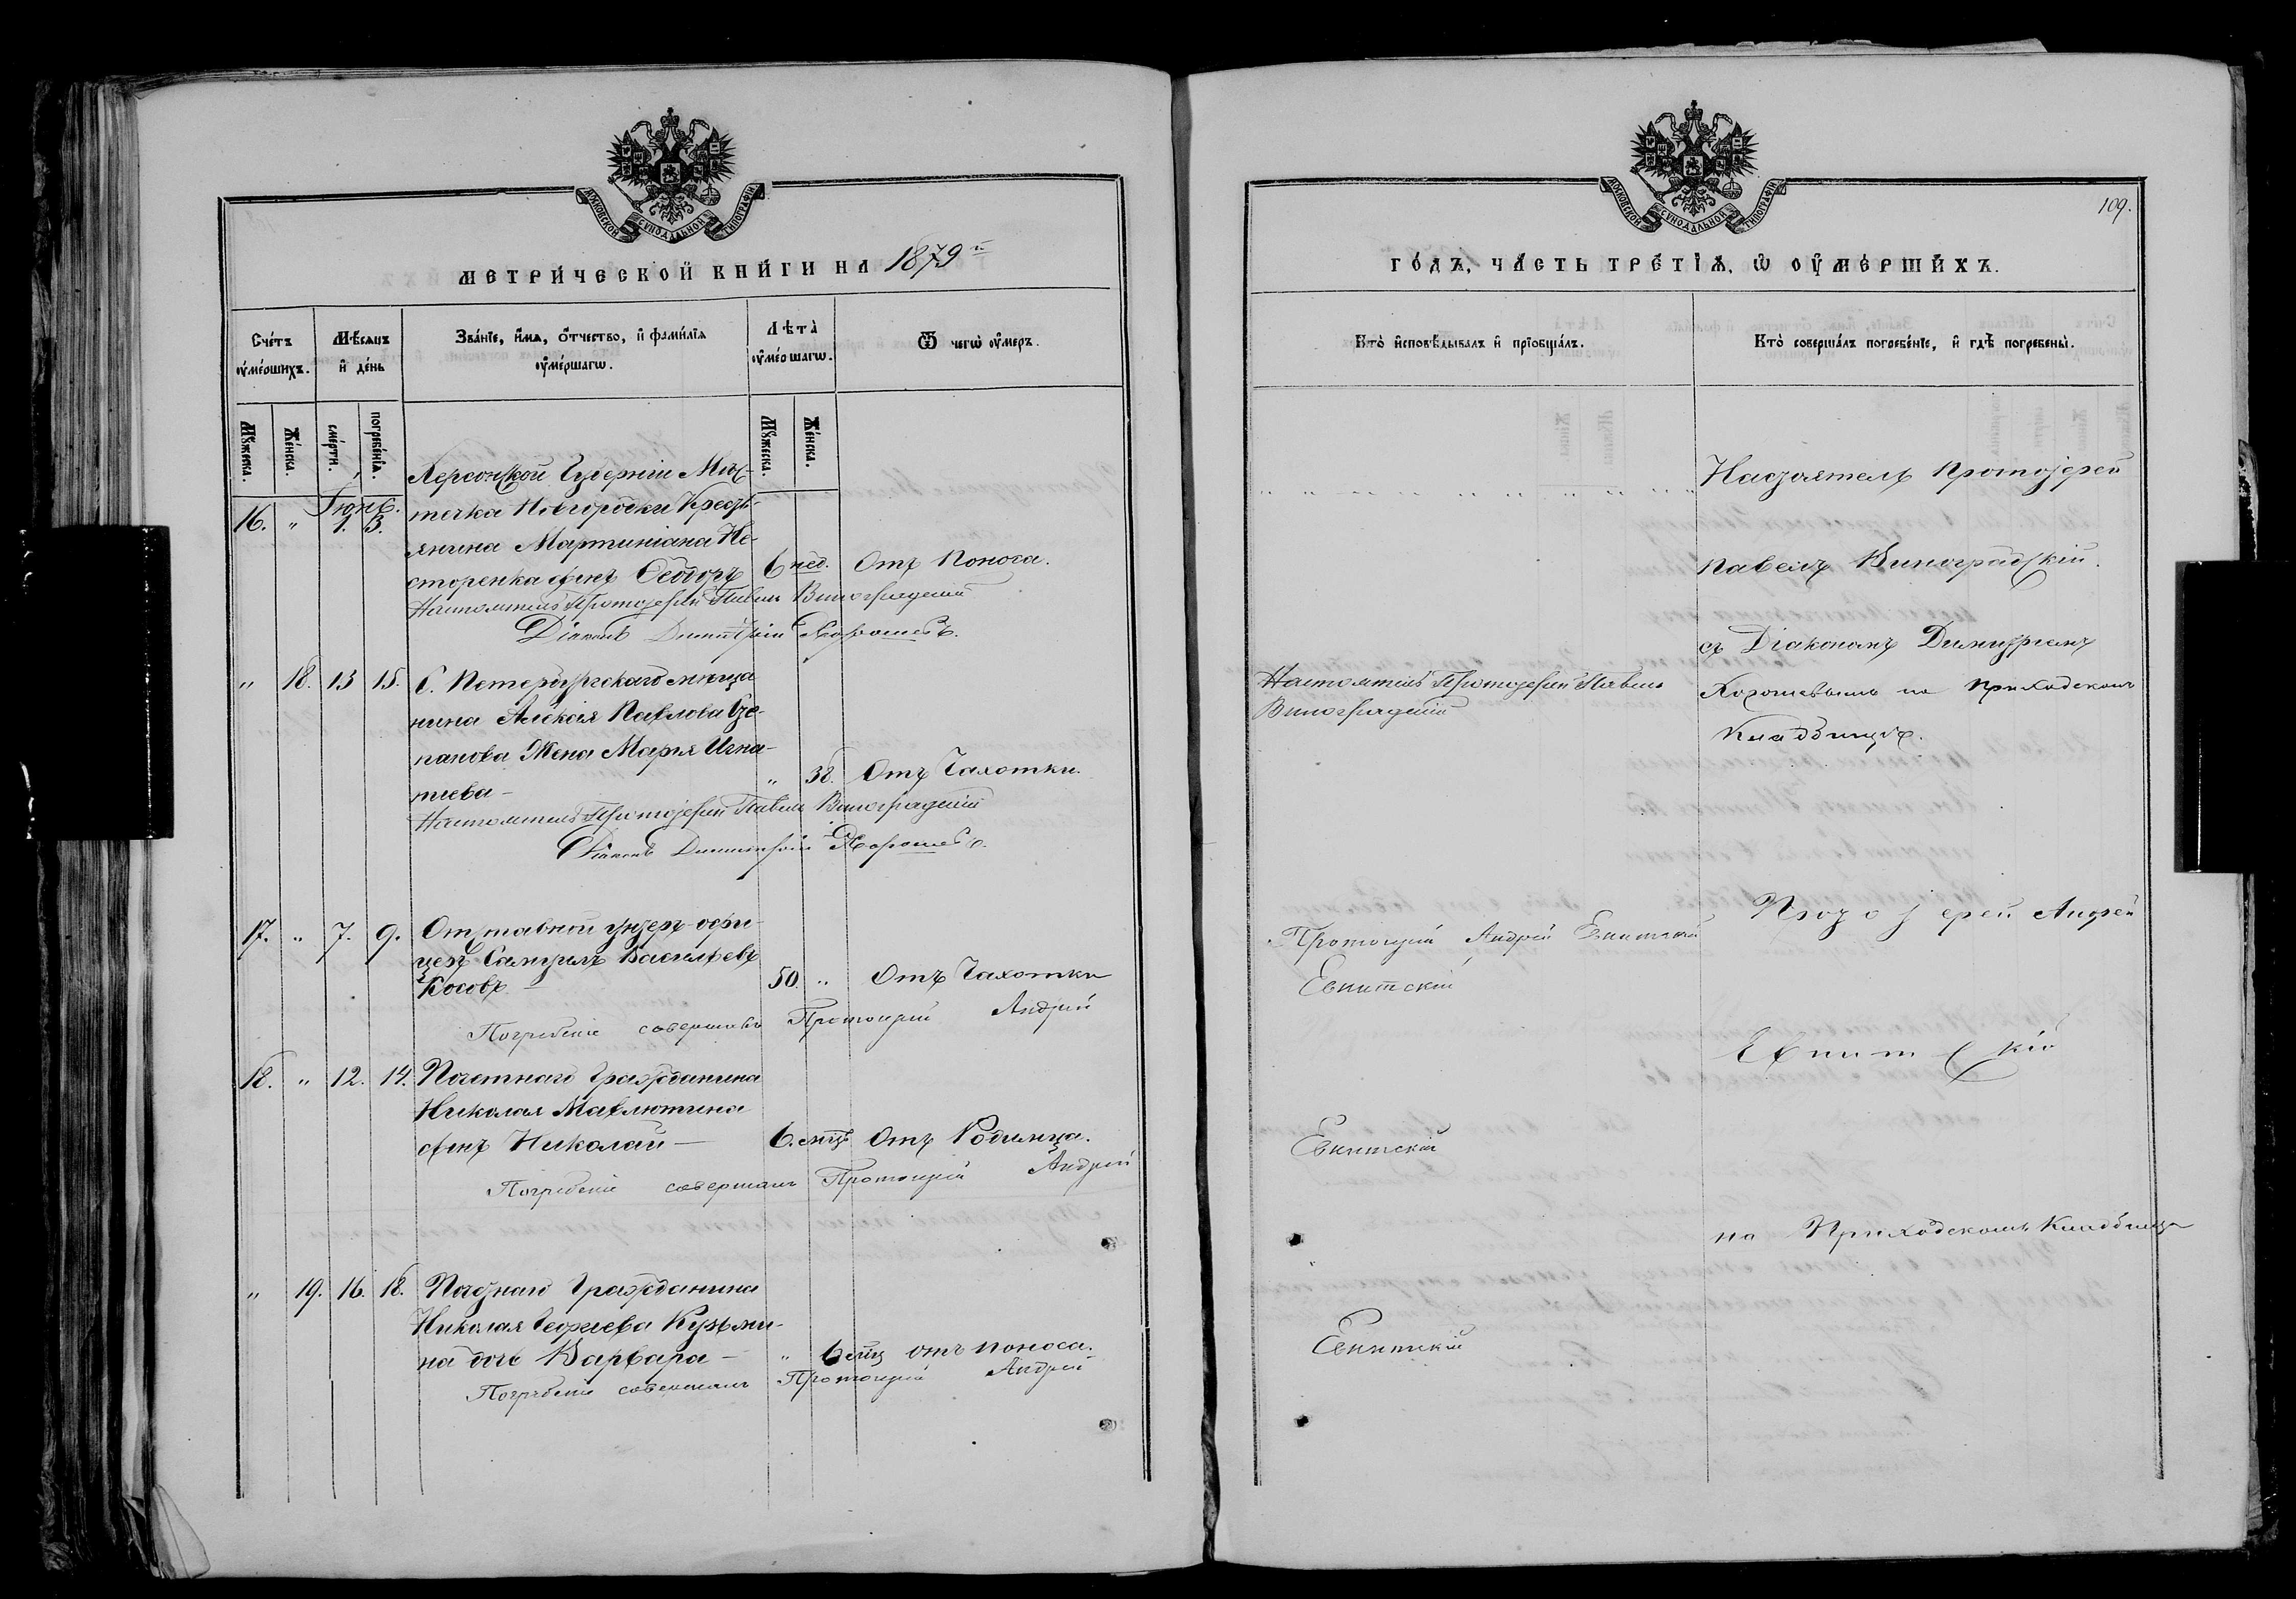 МОСКОВСКОЙ СѴНОДАЛЬНОЙ ТИПОГРАФІИ
МЕТРИ́ЧЕСКОЙ КНИ́ГИ НА 1879й
Сче́тъ ᲂумершихъ.
Мѣсяцъ и день
Зва́нїе, и҆́мѧ, ѻ҆́тчество, и҆ фами́лїѧ ᲂу҆ме́ршагѡ.
Лѣта̀ ᲂу҆ме́ршагѡ.
Ѿ чегѡ̀ ᲂу҆́меръ.
Мꙋжеска.
Же́нска.
сме́рти.
погребе́нїѧ.
Мꙋжеска.
Же́нска.
Іюнь.
Херсонской Губерніи Мѣс-
16. " 1. 3. течка Новгородки Кресть-
янина Мартиніана Не-
сторенка сынъ Ѳеодоръ 6 нед. Отъ Поноса.
Настоятель Протоіерей Павелъ Виноградскій
Діаконъ Димитрій Хорошевъ.
" 18. 13 15. С. Петербургскаго мѣща
нина Алексія Павлова Сте-
панова Жена Марія Игна-
тіева – " 38. Отъ Чахотки.
Настоятель Протоіерей Павелъ Виноградскій
Діаконъ Димитрій Хорошевъ.
17. " 7. 9. Отставной унтеръ-офи-
церъ Самуилъ Васильевъ
Косовъ – 50. " Отъ Чахотки
Погребеніе совершалъ Протоіерей Андрей
18. " 12. 14. Почетнаго Гражданина
Николая Мавлютина
сынъ Николай – 6. мцъ Отъ Родимца.
Погребеніе совершалъ Протоіерей Андрей
" 19. 16. 18. Почетнаго Гражданина
Николая Георгіева Кузьми-
на дочь Варвара – " 6 мц отъ поноса.
Погребеніе совершалъ Протоіерей Андрей
МОСКОВСКОЙ СѴНОДАЛЬНОЙ ТИПОГРАФІИ
109.
ГО́ДЪ, ЧА́СТЬ ТРЕ́ТЇѦ, Ѡ҆ ОУ҆МЕ́РШИХЪ.
Кто̀ и҆сповѣ́дывалъ и҆ прїобща́лъ.
Кто̀ соверша́лъ погребе́нїе, и҆ гдѣ̀ погребены̀.
Настоятель Протоіерей
Павелъ Виноградскій.
съ Діакономъ Димитріемъ
Хорошевымъ на приходскомъ
Кладбищѣ.
Настоятель Протоіерей Павелъ
Виноградскій
Протоіерей Андрей
Протоіерей Андрей Евнитскій
Евнитскій
Евнитскій
Евнитскій
на Приходскомъ Кладбищѣ
Евнитскій